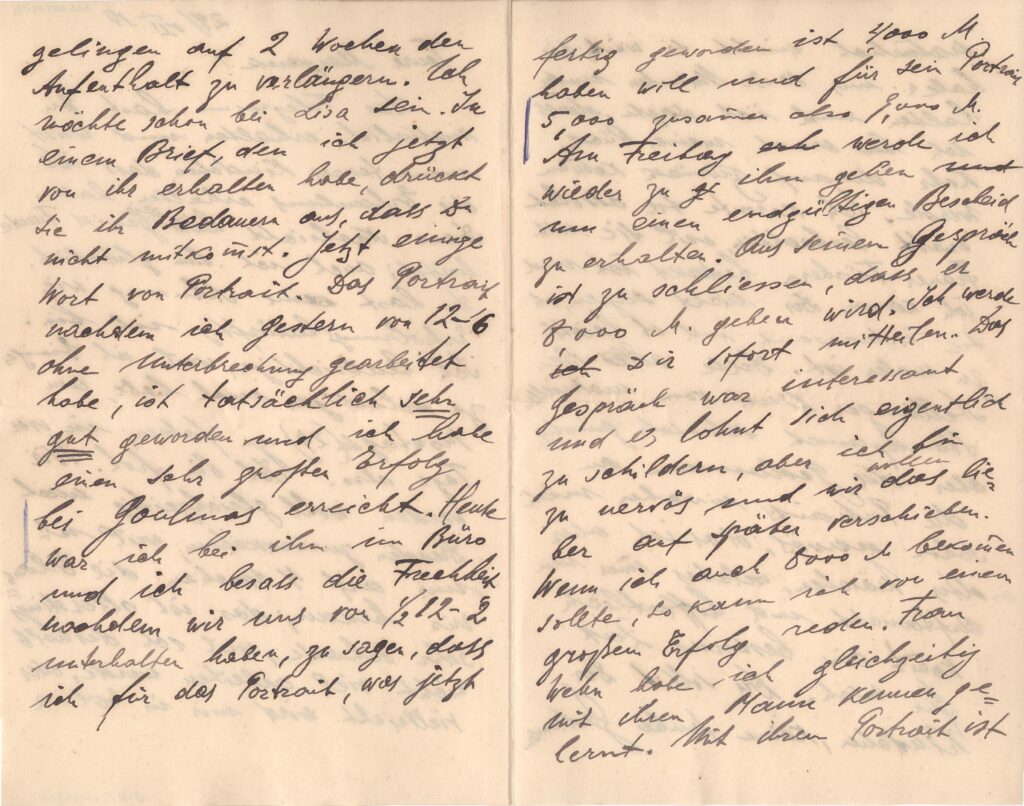 gelingen auf 2 Wochen den
Aufenthalt zu verlängern. Ich
möchte schon bei Lisa sein. In
einem Brief, den ich jetzt
von ihr erhalten habe, drückt
sie ihr Bedauern aus, dass Du
nicht mitkom̅st. Jetzt einige
Wort von Portrait. Das Portrait
nachdem ich gestern von 12–6
ohne Unterbrechung gearbeitet
habe, ist tatsächlich sehr
gut geworden und ich habe
einen sehr großen Erfolg
bei Goulmas erreicht. Heute
war ich bei ihm im Büro
und ich besass die Frechheit
nachdem wir uns von 1/2 12–2
unterhalten haben, zu sagen, dass
ich für das Portrait, was jetzt
fertig geworden ist 4000 M.
haben will und für sein Portrait
5,000 zusam̅en also 9,000 M.
Am Freitag werde ich
wieder zu ihm gehen und
um einen endgültigen Bescheid
zu erhalten. Aus seinem Gespräch
ist zu schliessen, dass er
8000 M. geben wird. Ich werde
ich Dir sofort mittheilen. Das
Gespräch war interessant
und es lohnt sich eigentlich
zu schildern, aber ich bin
zu nervös und wir wollen das lie=
ber auf später verschieben.
Wenn ich auch 8000 M bekom̅en
sollte, so kann ich von einem
großem Erfolg reden. Frau
Wehn habe ich gleichzeitig
mit ihren Mann kennen ge=
lernt. Mit ihrem Portrait ist